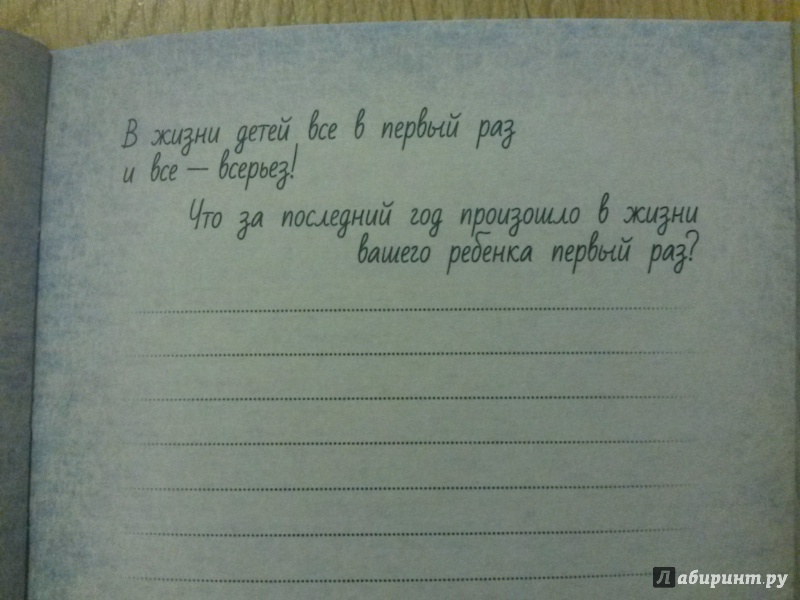 В жизни детей все в первый раз
и все — всерьез!
Что за последний год произошло в жизни
вашего ребенка первый раз?
Лабиринт.ру